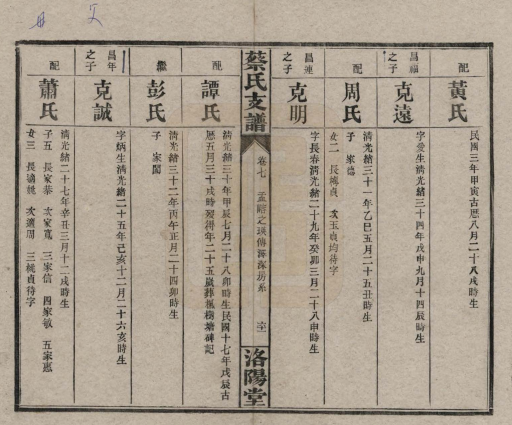 配
黄氏
民國三年甲寅古厯八月二十八戌時生
昌福
之子
克遠
字爱生淸光緒三十四年戊申九月十四辰時生
配
周氏
淸光緒三十一年乙巳五月二十五丑時生
子 家德
女二 長梅貞 次玉貞均待字
昌連
之子
克明
字長春淸光緒二十九年癸卯三月二十八申時生
蔡氏支譜
卷七
洛陽堂
配
譚氏
淸光緒三十年甲辰七月二十八卯時生民國十七年戊辰古
厯五月三十戌時殁得年二十五嵗葬楓樹塘碑記
繼
彭氏
淸光緒三十二年丙午正月二十四卯時生
子 家閣
昌年
之子
克誠
字炳生淸光緒二十五年己亥十二月二十六亥時生
配
蕭氏
淸光緒二十七年辛丑三月十二戌時生
子五 長家恭 次家寬 三家信 四家敏 五家惠
女三 長適姚 次適周 三桃貞待字